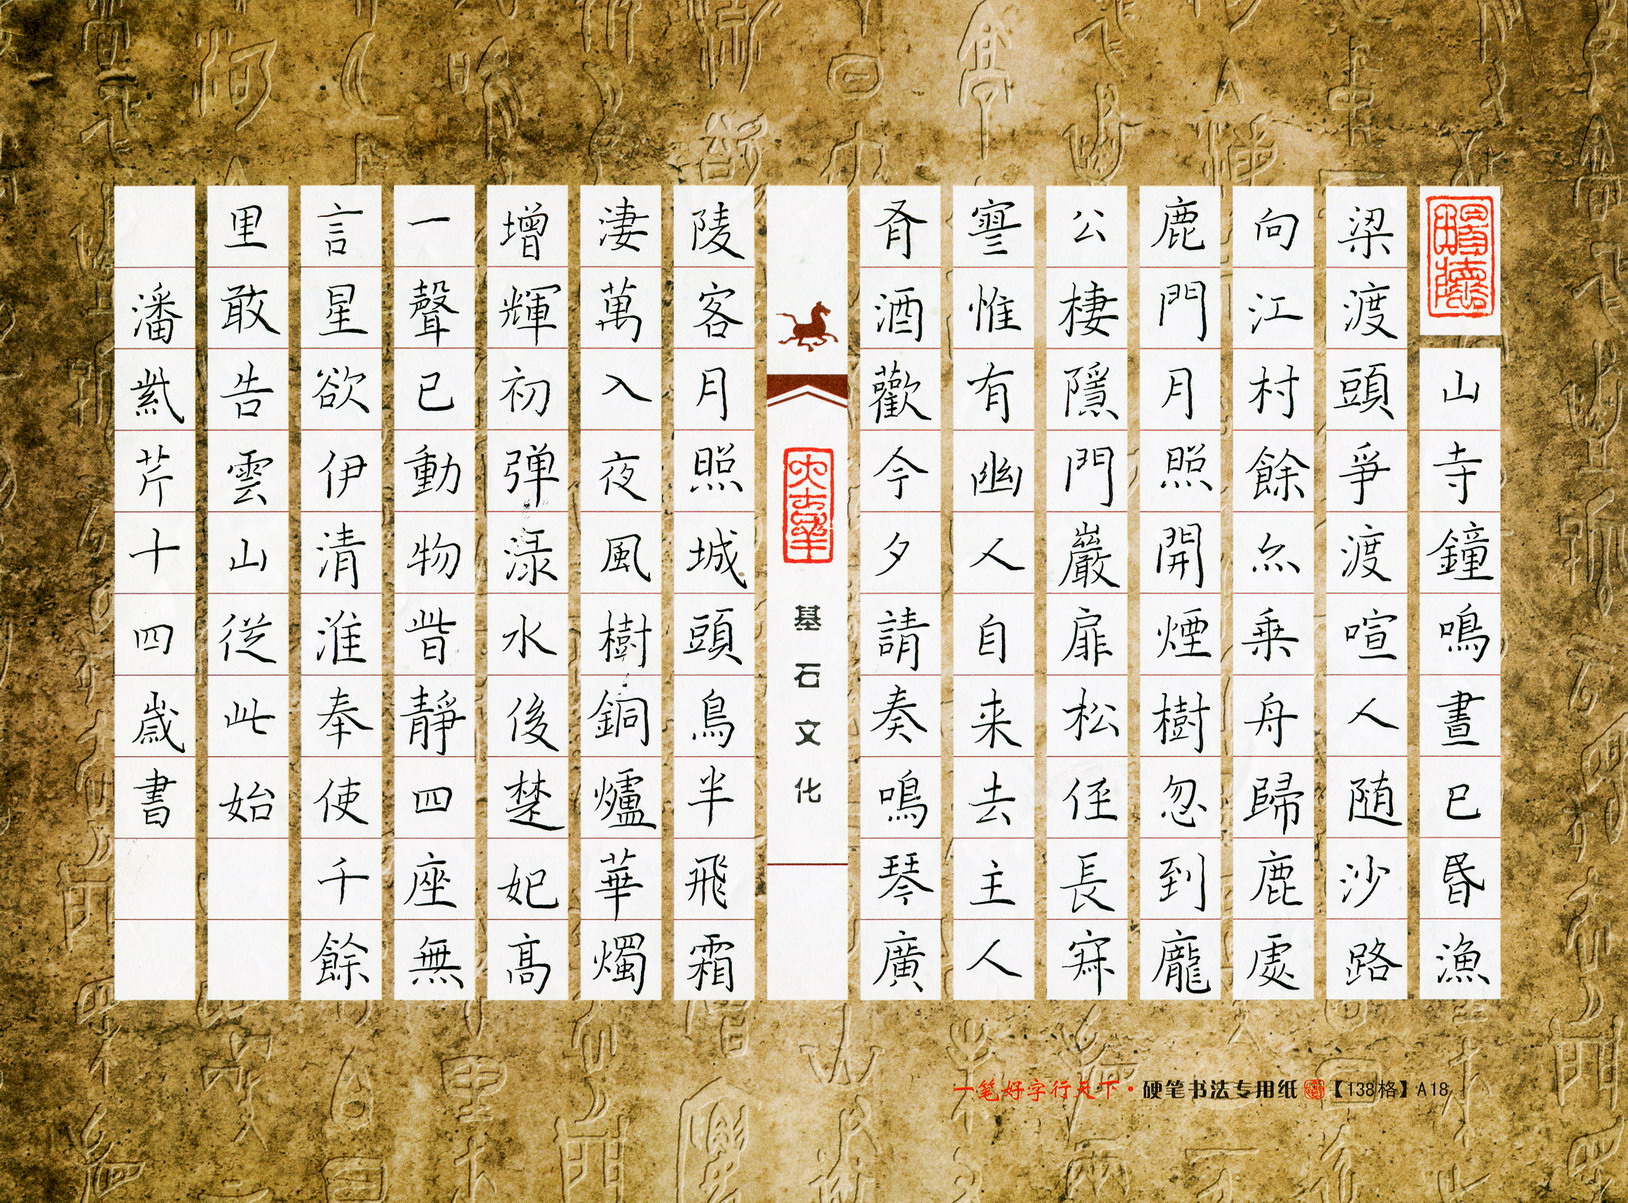 山寺鐘鳴晝已昏漁
梁渡頭爭渡喧人随沙路
向江村餘亦乗舟歸鹿處
鹿門月照開煙樹忽到龐
公棲隱門巖扉松侄長寂
寥惟有幽人自来去主人
有酒歡今夕請奏鳴琴廣
陵客月照城頭烏半飛霜
淒萬入夜風樹銅爐華燭
增輝初弹渌水後楚妃高
一聲已動物皆靜四座無
言星欲伊清淮奉使千餘
里敢告雲山從此始
潘紫芹十四歲書
基石文化
一笔好字行天下·硬笔书法专用纸【138格】A18